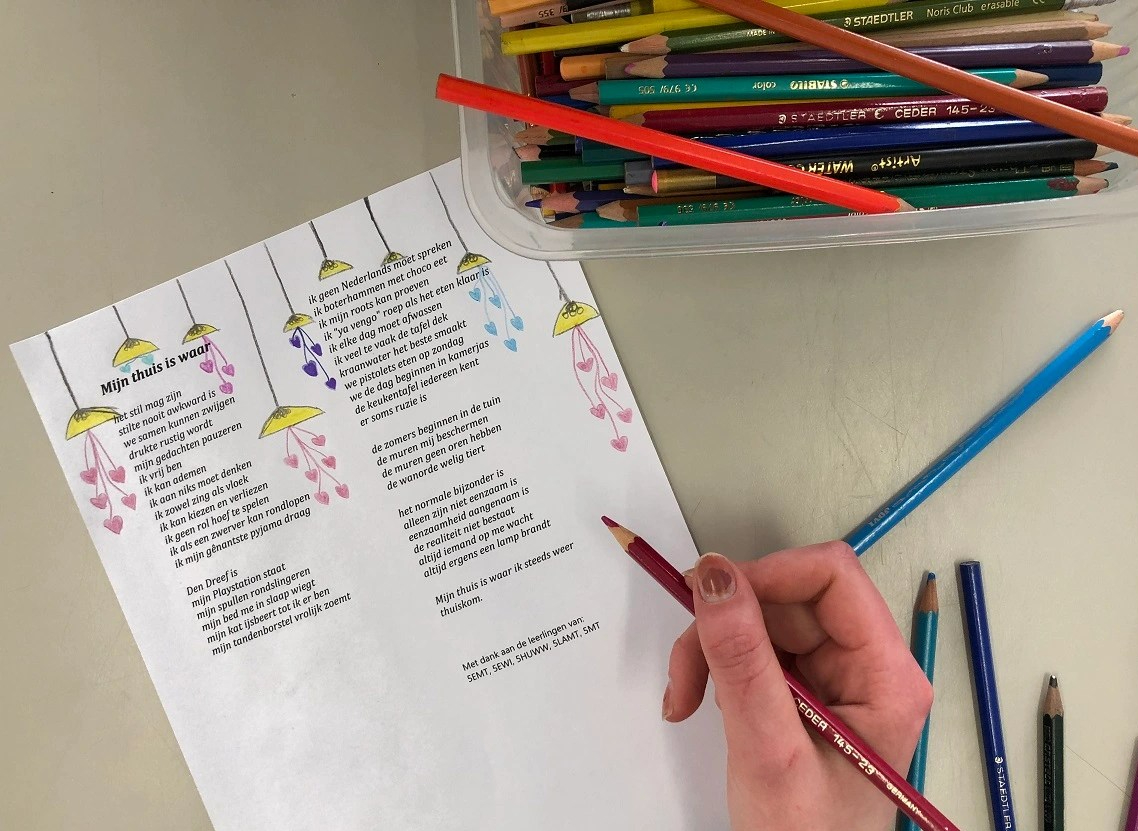 Mijn thuis is waar
het stil mag zijn
stilte nooit awkward is
we samen kunnen zwijgen
drukte rustig wordt
mijn gedachten pauzeren
ik vrij ben
ik kan ademen
ik aan niks moet denken
ik zowel zing als vloek
ik kan kiezen en verliezen
ik geen rol hoef te spelen
ik als een zwerver kan rondlopen
ik mijn gênantste pyjama draag
Den Dreef is
mijn Playstation staat
mijn spullen rondslingeren
mijn bed me in slaap wiegt
mijn kat ijsbeert tot ik er ben
mijn tandenborstel vrolijk zoemt
ik geen Nederlands moet spreken
ik boterhammen met choco eet
ik mijn roots kan proeven
ik "ya vengo" roep als het eten klaar is
ik elke dag moet afwassen
ik veel te vaak de tafel dek
kraanwater het beste smaakt
we pistolets eten op zondag
we de dag beginnen in kamerjas
de keukentafel iedereen kent
er soms ruzie is
de zomers beginnen in de tuin
de muren mij beschermen
de muren geen oren hebben
de wanorde welig tiert
het normale bijzonder is
alleen zijn niet eenzaam is
eenzaamheid aangenaam is
de realiteit niet bestaat
altijd iemand op me wacht
altijd ergens een lamp brandt
Mijn thuis is waar ik steeds weer
thuiskom.
Met dank aan de leerlingen van:
5EMT, 5EWI, 5HUWW, 5LAMT, 5MT
STAEDTLER Noris Club erasable
MADE IN
CE 979/ 505 color STABILO
STAEDTLER CEDER 145-23
Artist WATER
CEDER 145-23 GERMANY
STAEDTLER